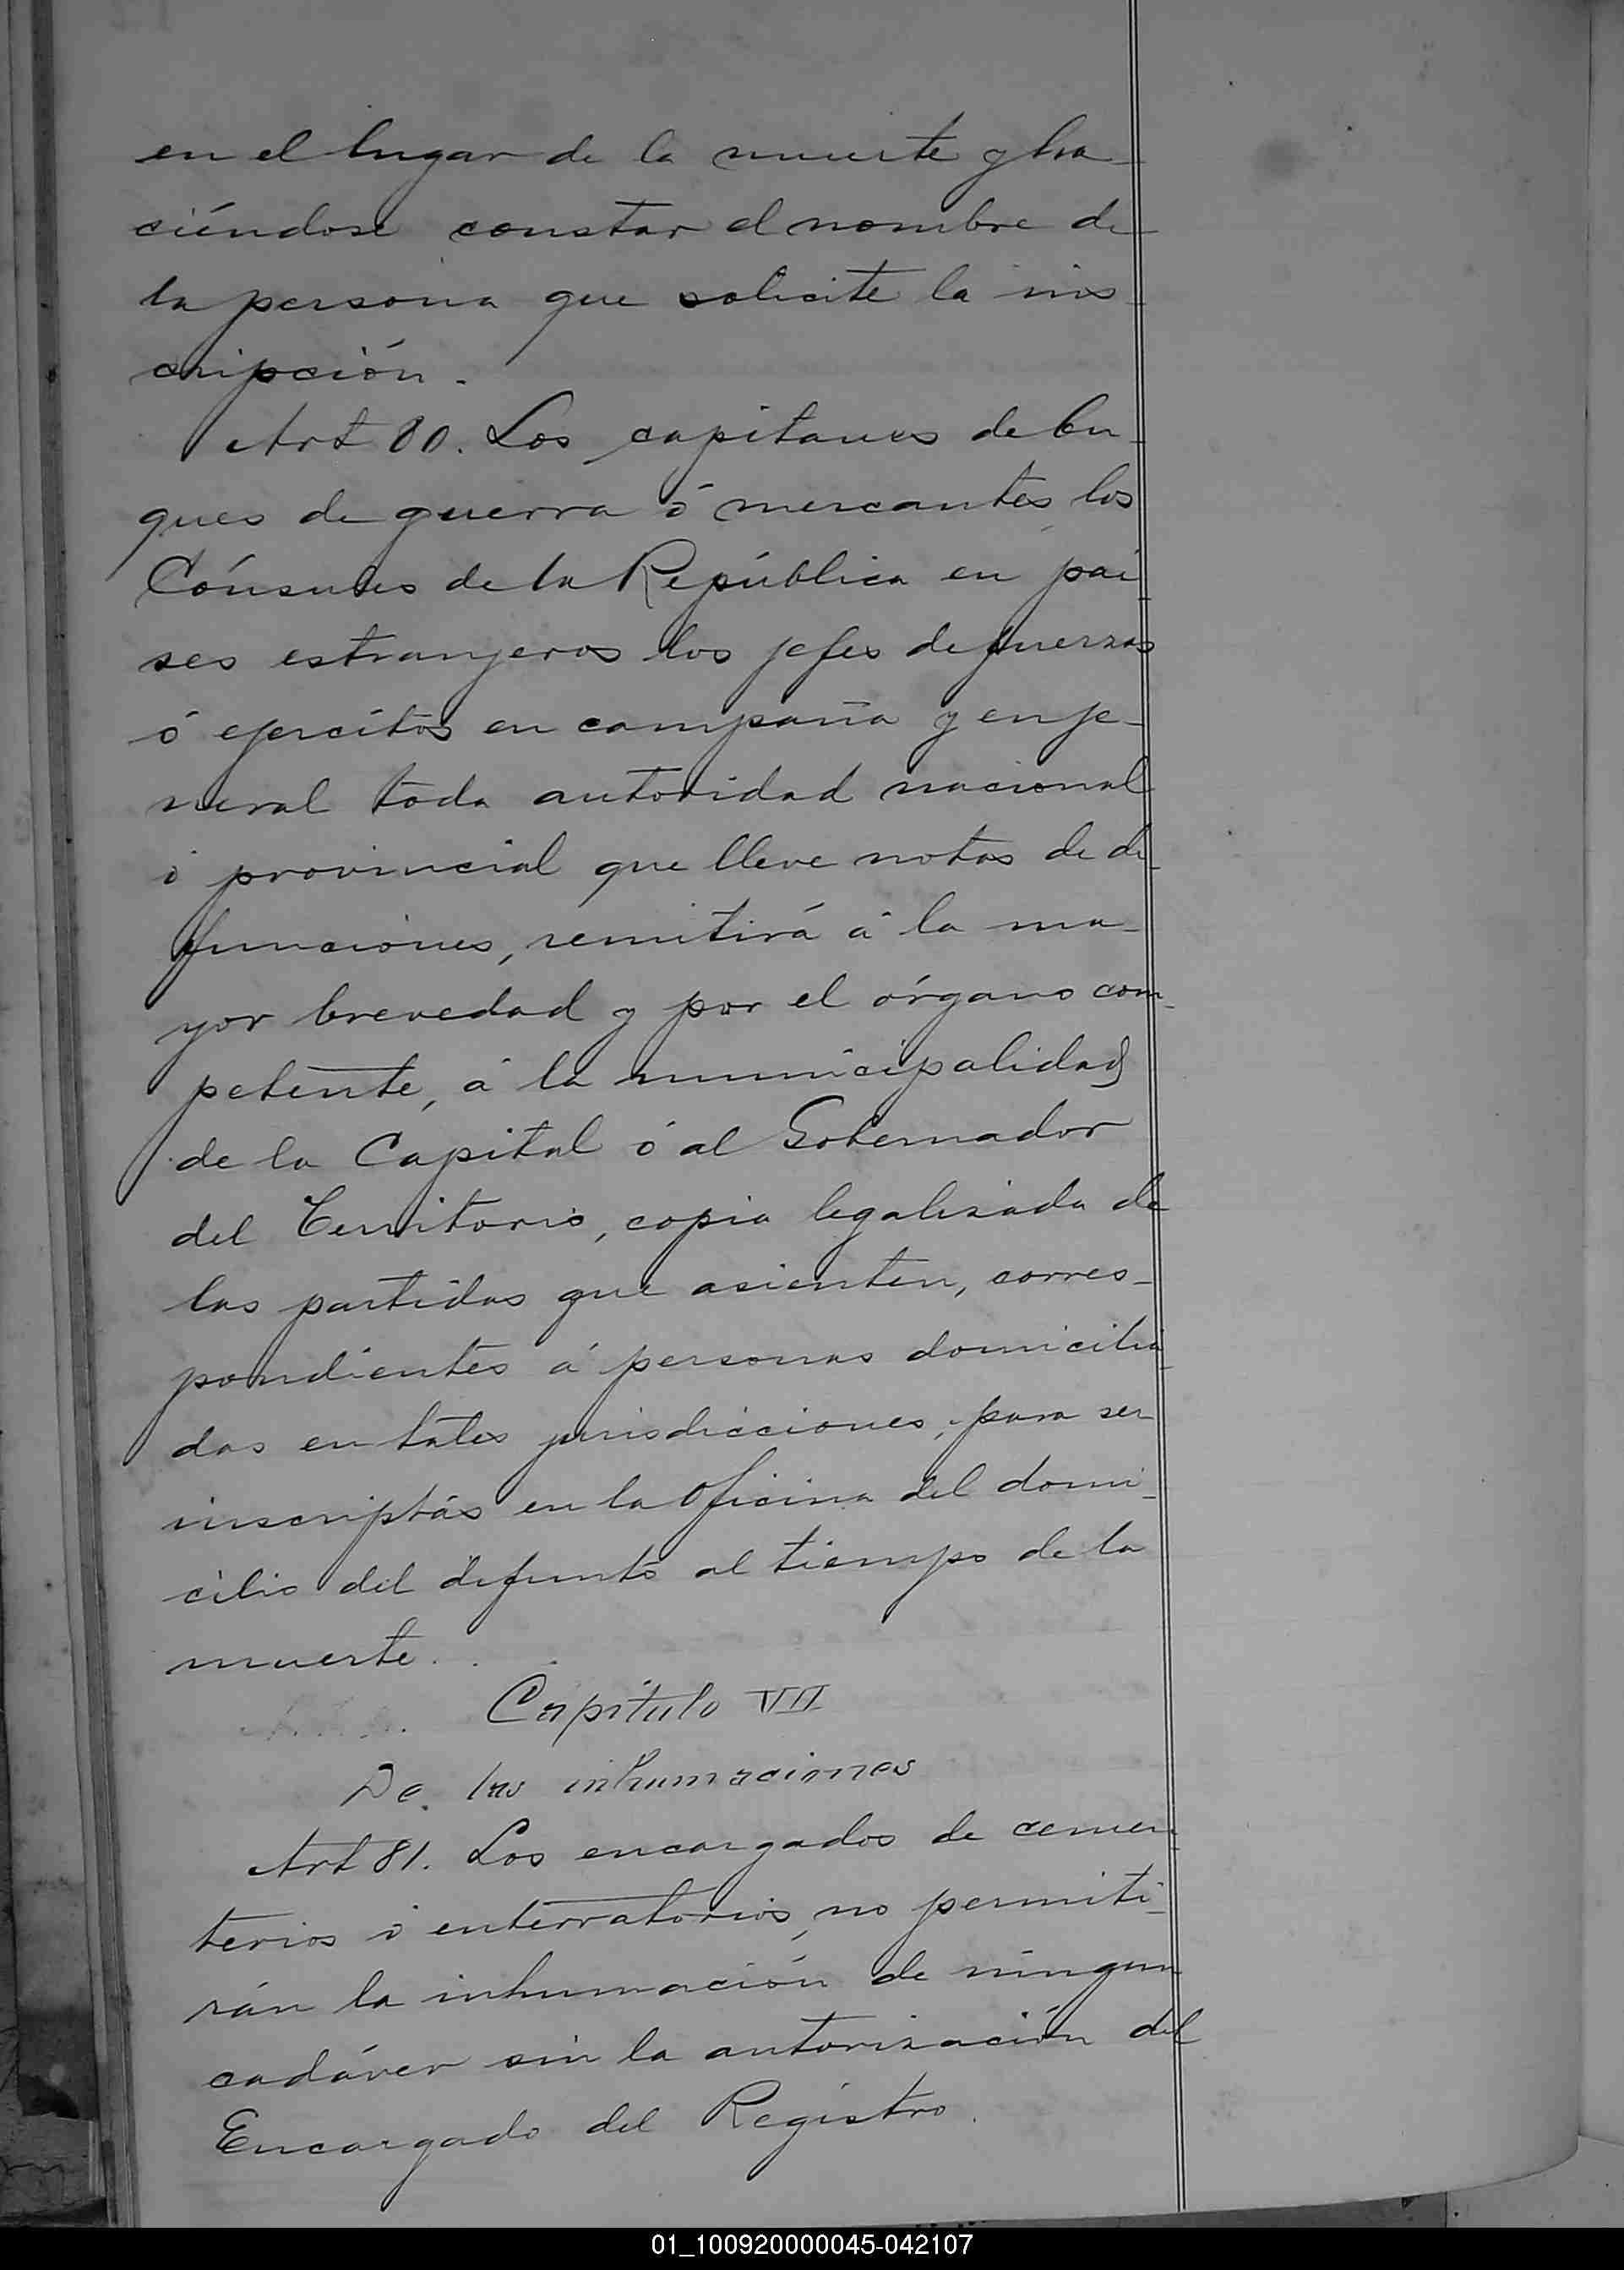 en el lugar de la muerte y ha-
ciéndose constar el nombre de
la persona que solicite la ins-
cripción.
Art 80. Los capitanes de bu-
ques de guerra ó mercantes, los
Cónsules de la República en paí-
ses estranjeros los jefes de fuerzas
ó ejercitos en campaña y en je-
neral toda autoridad nacional
ó provincial que lleve notas de de-
funciones, remitirá á la ma-
yor brevedad y por el órgano com-
petente, á la municipalidad
de la Capital ó al Gobernador
del Territorio, copia legalizada de
las partidas que asienten, corres-
pondientes á personas domicilia-
das en tales jurisdicciones, para ser
inscriptas en la Oficina del domi-
cilio del difunto al tiempo de la
muerte.
Capítulo VII
De las inhumaciones
Art 81. Los encargados de cemen-
terios ó enterratorios, no permiti-
rán la inhumación de ningun
cadáver sin la autorización del
Encargado del Registro.
01_100920000045-042107